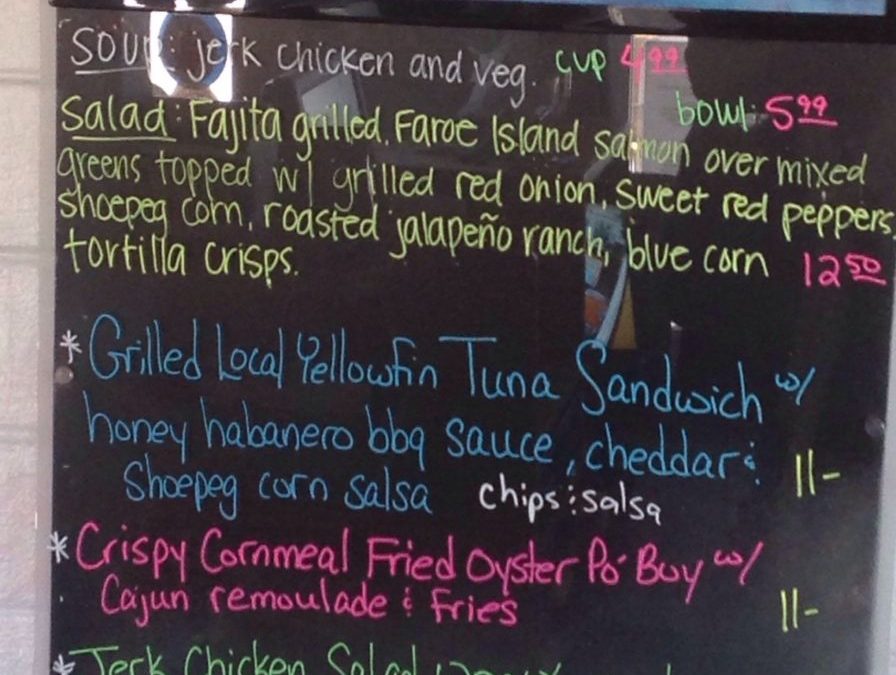 Soup: jerk chicken and veg. cup 4.99
bowl: 5.99
Salad: Fajita grilled, Faroe Island salmon over mixed
greens topped w/ grilled red onion, sweet red peppers,
shoepeg corn, roasted jalapeño ranch, blue corn
tortilla crisps. 12.50
* Grilled Local Yellowfin Tuna Sandwich w/
honey habanero bbq sauce, cheddar &
Shoepeg corn salsa chips & salsa 11-
* Crispy Cornmeal Fried Oyster Po' Boy w/
Cajun remoulade & fries 11-
* Jerk Chicken Salad